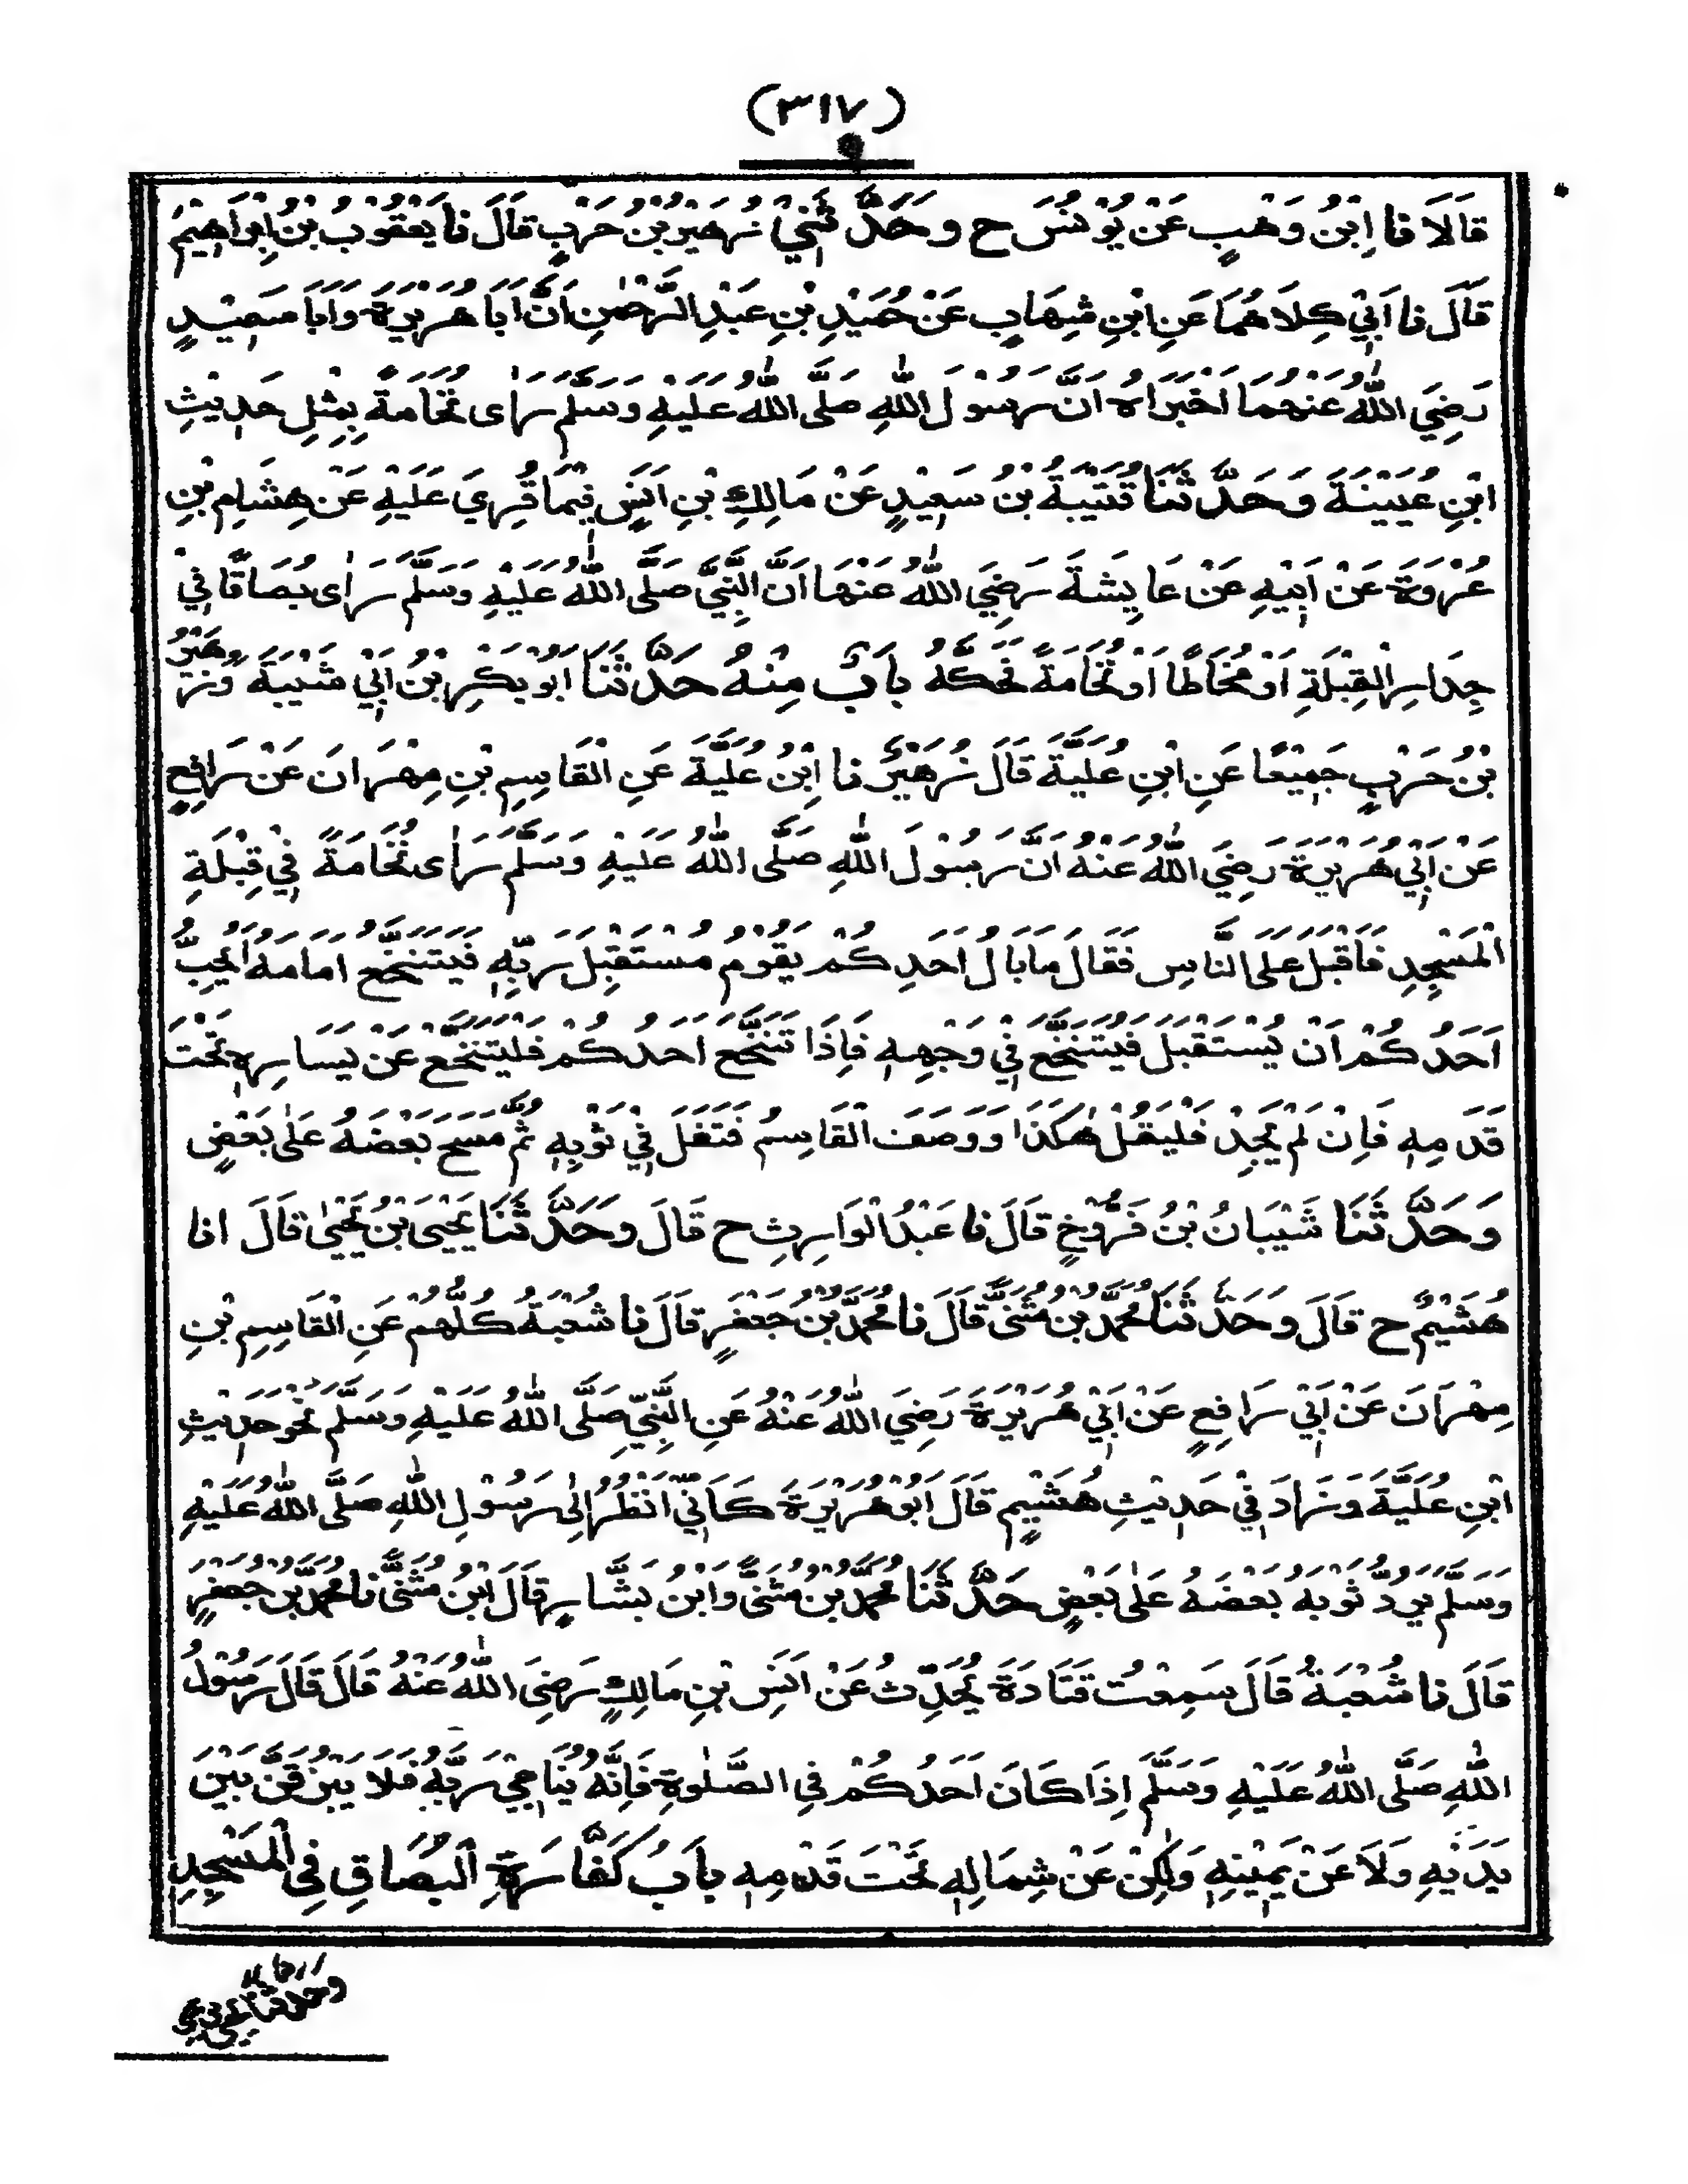 (٣١٧)
قَالَا نَا اِبْنُ وَهْبٍ عَنْ يُوْنُسَ ح وَحَدَّثَنِيْ زُهَيْرُ بْنُ حَرْبٍ قَالَ نَا يَعْقُوْبُ بْنُ اِبْرَاهِيْمَ
قَالَ نَا اَبِيْ كِلَاهُمَا عَنِ ابْنِ شِهَابٍ عَنْ حُمَيْدِ بْنِ عَبْدِ الرَّحْمٰنِ اَنَّ اَبَا هُرَيْرَةَ وَاَبَا سَعِيْدٍ
رَضِيَ اللّٰهُ عَنْهُمَا اَخْبَرَاهُ اَنَّ رَسُوْلَ اللّٰهِ صَلَّى اللّٰهُ عَلَيْهِ وَسَلَّمَ رَاٰى نُخَامَةً بِمِثْلِ حَدِيْثِ
ابْنِ عُيَيْنَةَ وَحَدَّثَنَا قُتَيْبَةُ بْنُ سَعِيْدٍ عَنْ مَالِكِ بْنِ اَنَسٍ فِيْمَا قُرِيَ عَلَيْهِ عَنْ هِشَامِ بْنِ
عُرْوَةَ عَنْ اَبِيْهِ عَنْ عَايِشَةَ رَضِيَ اللّٰهُ عَنْهَا اَنَّ النَّبِيَّ صَلَّى اللّٰهُ عَلَيْهِ وَسَلَّمَ رَاٰى بُصَاقًا فِيْ
جِدَارِ الْقِبْلَةِ اَوْ مُخَاطًا اَوْ نُخَامَةً فَحَكَّهُ بَابٌ مِنْهُ حَدَّثَنَا اَبُوْ بَكْرِ بْنُ اَبِيْ شَيْبَةَ وَزُهَيْرُ
بْنُ حَرْبٍ جَمِيْعًا عَنِ ابْنِ عُلَيَّةَ قَالَ زُهَيْرٌ نَا اِبْنُ عُلَيَّةَ عَنِ الْقَاسِمِ بْنِ مِهْرَانَ عَنْ رَافِعٍ
عَنْ اَبِيْ هُرَيْرَةَ رَضِيَ اللّٰهُ عَنْهُ اَنَّ رَسُوْلَ اللّٰهِ صَلَّى اللّٰهُ عَلَيْهِ وَسَلَّمَ رَاٰى نُخَامَةً فِيْ قِبْلَةِ
الْمَسْجِدِ فَاَقْبَلَ عَلَى النَّاسِ فَقَالَ مَا بَالُ اَحَدِكُمْ يَقُوْمُ مُسْتَقْبِلَ رَبِّهٖ فَيَتَنَخَّعُ اَمَامَهُ اَيُحِبُّ
اَحَدُكُمْ اَنْ يُسْتَقْبَلَ فَيُتَنَخَّعَ فِيْ وَجْهِهٖ فَاِذَا تَنَخَّعَ اَحَدُكُمْ فَلْيَتَنَخَّعْ عَنْ يَسَارِهٖ تَحْتَ
قَدَمِهٖ فَاِنْ لَمْ يَجِدْ فَلْيَقُلْ هٰكَذَا وَوَصَفَ الْقَاسِمُ فَتَفَلَ فِيْ ثَوْبِهٖ ثُمَّ مَسَحَ بَعْضَهُ عَلٰى بَعْضٍ
وَحَدَّثَنَا شَيْبَانُ بْنُ فَرُّوْخٍ قَالَ نَا عَبْدُ الْوَارِثِ ح قَالَ وَحَدَّثَنَا يَحْيَى بْنُ يَحْيٰى قَالَ انا
هُشَيْمٌ ح قَالَ وَحَدَّثَنَا مُحَمَّدُ بْنُ مُثَنَّى قَالَ نَا مُحَمَّدُ بْنُ جَعْفَرٍ قَالَ نَا شُعْبَةُ كُلُّهُمْ عَنِ الْقَاسِمِ بْنِ
مِهْرَانَ عَنْ اَبِيْ رَافِعٍ عَنْ اَبِيْ هُرَيْرَةَ رَضِيَ اللّٰهُ عَنْهُ عَنِ النَّبِيِّ صَلَّى اللّٰهُ عَلَيْهِ وَسَلَّمَ نَحْوَ حَدِيْثِ
ابْنِ عُلَيَّةَ وَزَادَ فِيْ حَدِيْثِ هُشَيْمٍ قَالَ اَبُوْ هُرَيْرَةَ كَاَنِّيْ اَنْظُرُ اِلٰى رَسُوْلِ اللّٰهِ صَلَّى اللّٰهُ عَلَيْهِ
وَسَلَّمَ يَرُدُّ ثَوْبَهُ بَعْضَهُ عَلٰى بَعْضٍ حَدَّثَنَا مُحَمَّدُ بْنُ مُثَنَّى وَابْنُ بَشَّارٍ قَالَ ابْنُ مُثَنَّى نَا مُحَمَّدُ بْنُ جَعْفَرٍ
قَالَ نَا شُعْبَةُ قَالَ سَمِعْتُ قَتَادَةَ يُحَدِّثُ عَنْ اَنَسِ بْنِ مَالِكٍ رَضِيَ اللّٰهُ عَنْهُ قَالَ قَالَ رَسُوْلُ
اللّٰهِ صَلَّى اللّٰهُ عَلَيْهِ وَسَلَّمَ اِذَا كَانَ اَحَدُكُمْ فِي الصَّلٰوةِ فَاِنَّهُ يُنَاجِيْ رَبَّهُ فَلَا يَبْزُقَنَّ بَيْنَ
يَدَيْهِ وَلَا عَنْ يَمِيْنِهٖ وَلٰكِنْ عَنْ شِمَالِهٖ تَحْتَ قَدَمِهٖ بَابُ كَفَّارَةِ الْبُصَاقِ فِي الْمَسْجِدِ